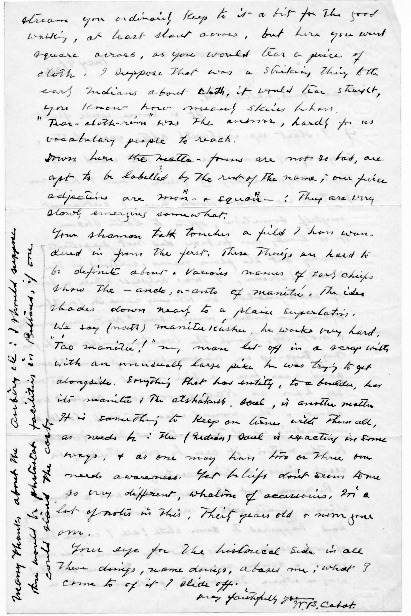 stream you ordinarily keep to it a bit for the good
walking, at least slant across, but here you went
square across, as you would tear a piece of
cloth. I suppose that was a striking thing to the
early Indians about cloth, it would tear straight,
you know how uneasy skins
"Tear-cloth-river" was the answer, hardly for us
vocabulary people to reach.
Down here the forms are not so bad, are
apt to be labelled by the rest of the name; our
adjectives are They are very
slowly emerging somewhat.
Your shaman talk touches a field I have wan-
dered in from the first. These things are hard to
be definite about. Various names of early chiefs
show the -ando, -anto of manitu. The idea
shades down nearly to a plain superlative.
We say (north) he works very hard.
manitu!" my man let off in a scrap with
with an unusually large pike he was trying to get
alongside. Everything that has entity, to a boulder, has
its manitu. The soul, is another matter
It is something to keep on terms with them all,
as needs be: The (Indian) soul is exacting in some
ways, & as one may have two or three one
needs awareness. Yet beliefs don't seem to me
so very different, whatever of accessories. I've a
lot of notes in this, thirty years old & more gone
over.
Your eye for the historical side in all
these doings, name doings, abases me; what I
come to of it I slide off.
Very faithfully yrs
W.B. Cabot.
Many thanks about the I should suppose
there would be photostat facilities in if one
could stand the cost.